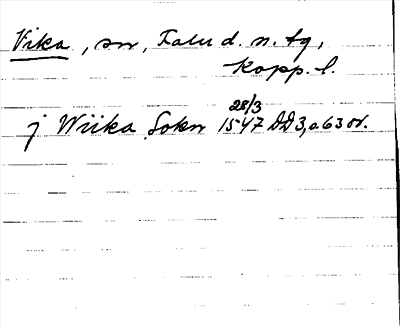 Vika, sn, Falu d. n. tg,
Kopp. l.
28/3
j Wiika Sokn 1547 DD3, s. 63 or.